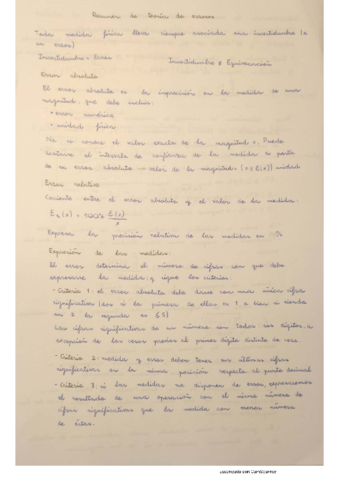 Resumen de teoría de errores
Toda medida física lleva siempre asociada una incertidumbre (o
un error)
Incertidumbre = Error Incertidumbre ≠ Equivocación
Error absoluto
El error absoluto es la imprecisión en la medida de una
magnitud, que debe incluir:
• error numérico
• unidad física
No se conoce el valor exacto de la magnitud x. Puede
el intervalo de confianza de la medida a partir
de su error absoluto → valor de la magnitud: (x ± E(x)) unidad
Error relativo
Cociente entre el error absoluto y el valor de la medida:
Er(x) = 100% E(x)/x
Expresa la precisión relativa de las medidas en %
Expresión de las medidas:
El error determina el número de cifras con que debe
expresarse la medida, y sigue los criterios:
- Criterio 1: el error absoluto debe darse con una única cifra
significativa (dos si la primera de ellas es 1 o bien si siendo
un 2 la segunda es
Las cifras significativas de un número son todos sus dígitos, a
excepción de los ceros previos al primer dígito distinto de cero.
- Criterio 2: medida y error deben tener sus últimas cifras
significativas en la misma posición respecto al punto decimal
- Criterio 3: si las medidas no disponen de error, expresaremos
el resultado de una operación con el mismo número de
cifras significativas que la medida con menor número
de éstas.